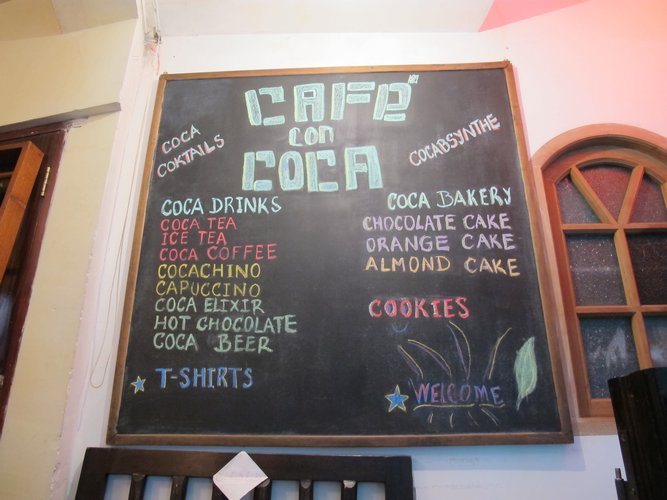 CAFÉ
CON
COCA
COCA
COKTAILS
COCABSYNTHE
COCA DRINKS
COCA TEA
ICE TEA
COCA COFFEE
COCACHINO
CAPUCCINO
COCA ELIXIR
HOT CHOCOLATE
COCA BEER
T-SHIRTS
COCA BAKERY
CHOCOLATE CAKE
ORANGE CAKE
ALMOND CAKE
COOKIES
WELCOME